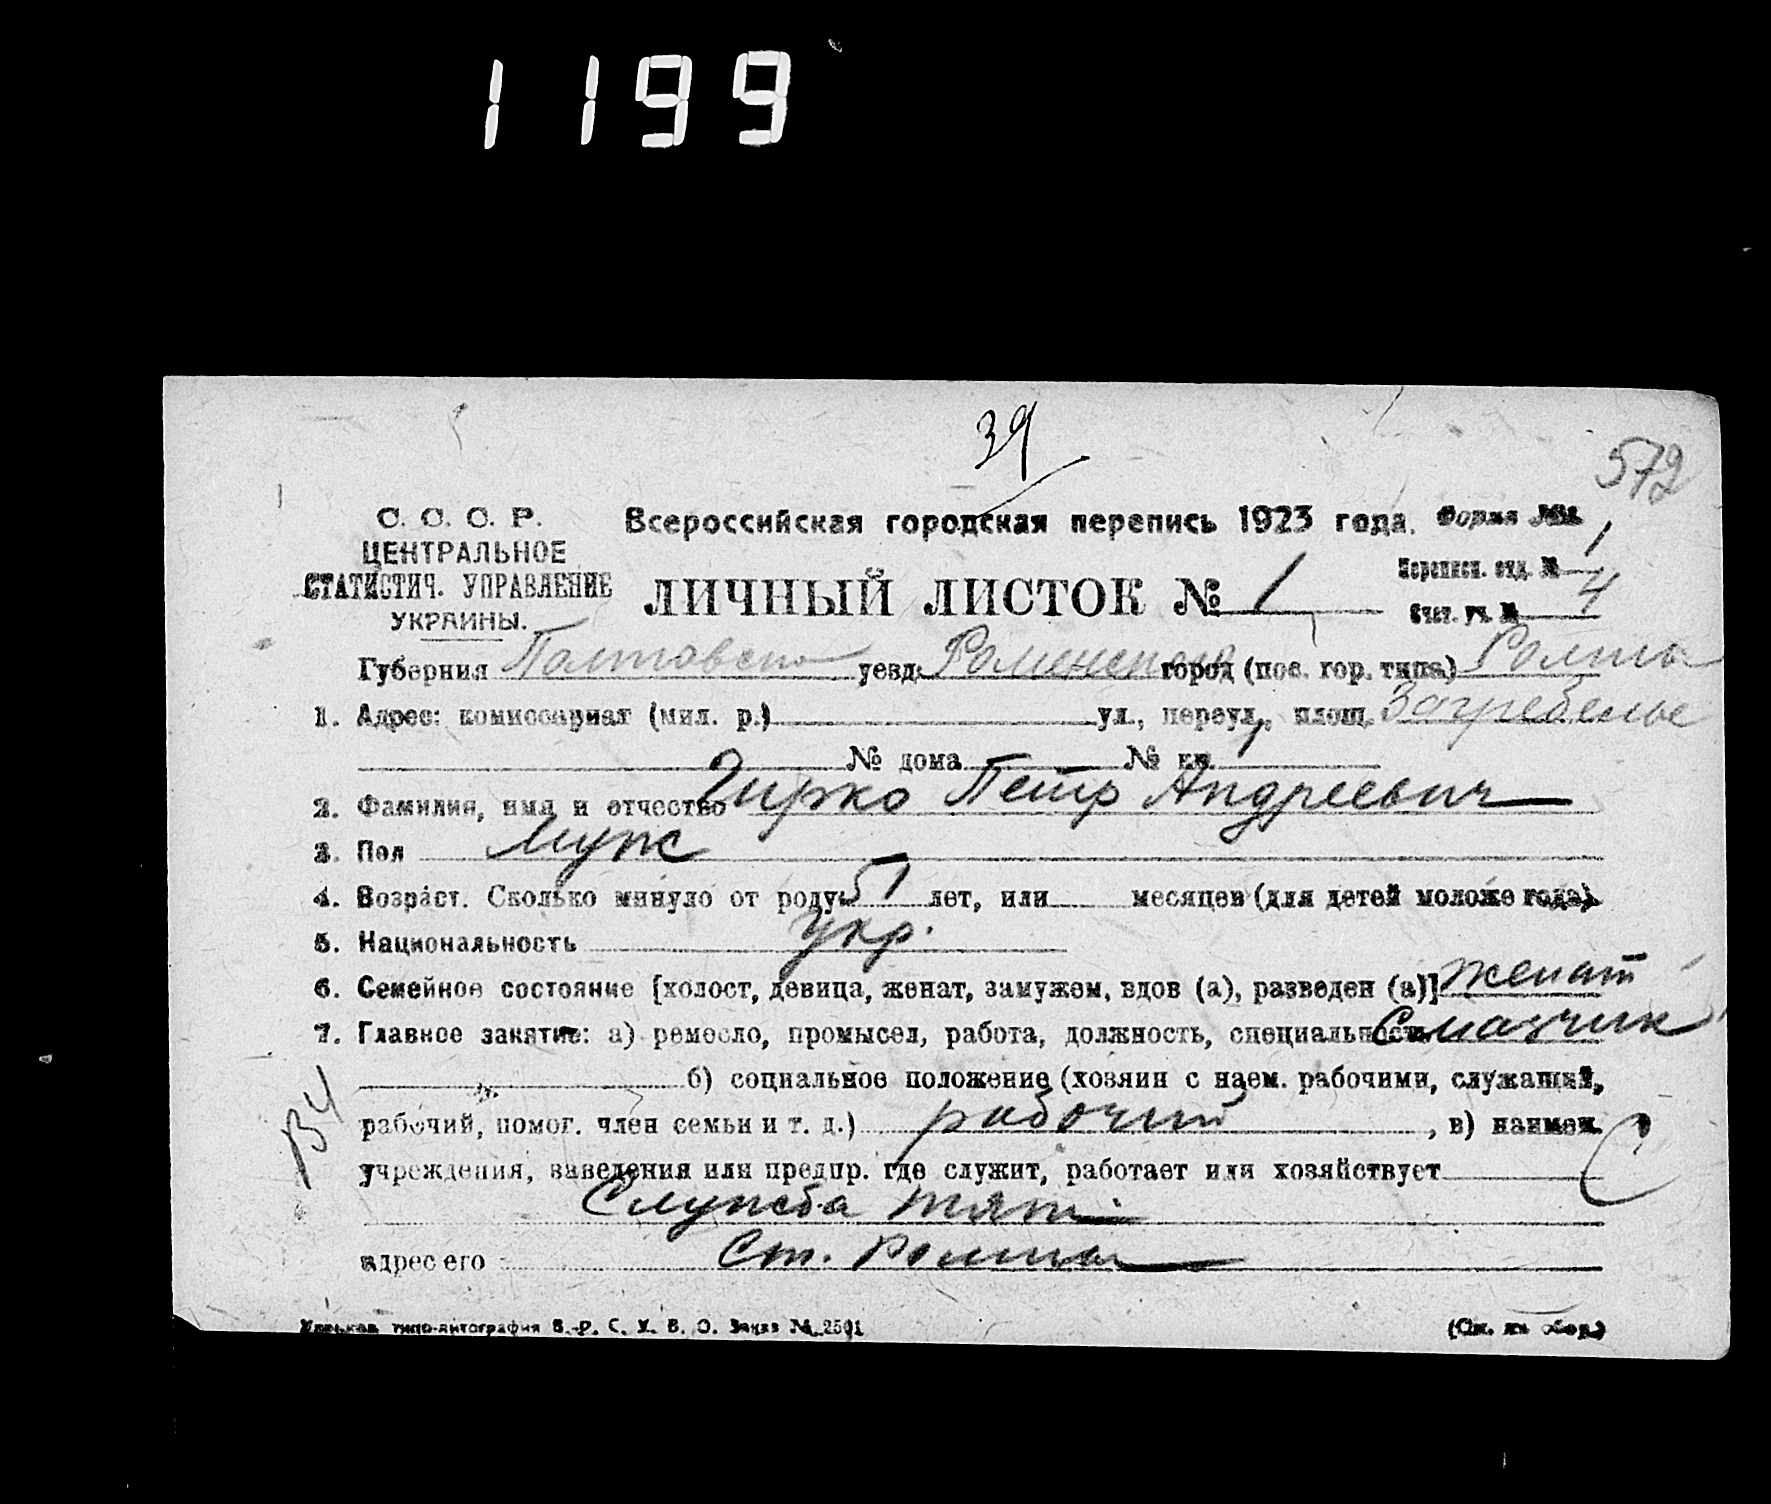 1199
39
572
С. С. С. Р.
ЦЕНТРАЛЬНОЕ
СТАТИСТИЧ. УПРАВЛЕНИЕ
УКРАИНЫ.
Всероссийская городская перепись 1923 года. Форма №1
ЛИЧНЫЙ ЛИСТОК № 1
Переписн. отд. № 1
Счет. уч. № 4
Губерния Полтавско уезд Роменского город (пос. гор. типа) Ромны
1. Адрес: комиссариат (мил. р.) ул., переул., площ. Загребелье
№ дома № кв. 1
2. Фамилия, имя и отчество Гирко Петр Андреевич
3. Пол Муж
4. Возраст. Сколько минуло от роду 51 лет, или месяцев (для детей моложе года).
5. Национальность Укр.
6. Семейное состояние [холост, девица, женат, замужем, вдов (а), разведен (а)] женат
7. Главное занятие: а) ремесло, промысел, работа, должность, специальность Смазчик
б) социальное положение (хозяин с наем. рабочими, служащий,
рабочий, помог. член семьи и т. д.) рабочий, в) наимен.
учреждения, заведения или предпр. где служит, работает или хозяйствует
Служба тяги
адрес его Ст. Ромны
типо-литография В.-Р. С. У. В. О. Заказ № 2501
(См. на обор.)